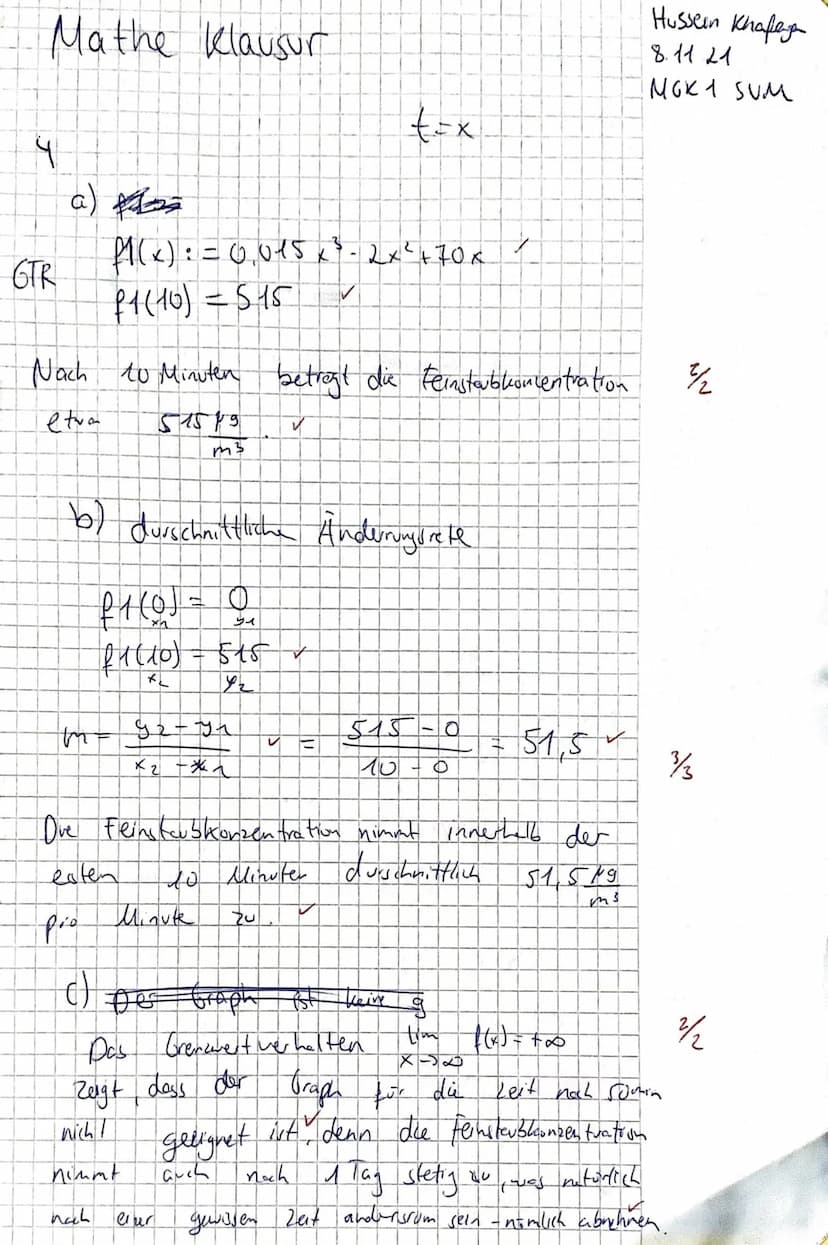 Mathe Klausur
Hussein
8.11 21
MGK1 SVM
t=x
4
a)
GTR
f1(x):=0,015x³-2x²+70x ✓
f1(10)=515 ✓
Nach 10 Minuten betregt die Feinstaubkonzentration
2/2
etwa 515 µg/m³. ✓
b) durschnittliche Änderungsrate
f1(0) = 0
x1 y1
f1(10) = 515 ✓
x2 y2
m = (y2-y1)/(x2-x1) ✓ = (515-0)/(10-0) = 51,5 ✓
3/3
Die Feinstaubkonzentration nimmt innerhalb der
esten 10 Minuten durschnittlich 51,5 µg/m³
pro Minute zu. ✓
c) Der Graph ist keine g
Das Grenzwertverhalten lim x→∞ f(x)=+∞
2/2
zeigt, dass der Graph für die Zeit nach 50min
nicht geeignet ist, ✓ denn die Feinstaubkonzentration
nimmt auch nach 1 Tag stetig zu, was natürlich
nach einer gewissen Zeit andersrum sein - nämlich abnehmen. ✓